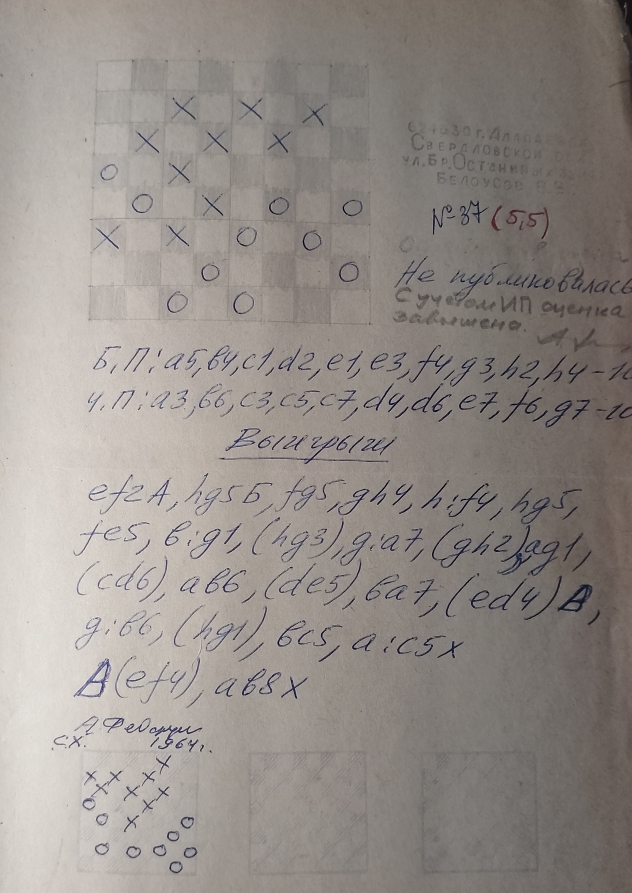 Свердловской
Белоусов
№37 (5,5)
Не публиковалась
С учетом ИП оценка
завышена.
Б.П: а5, в4, с1, d2, е1, е3, f4, g3, h2, h4 - 10
Ч.П: а3, в6, с3, с5, с7, d4, d6, е7, f6, g7 - 10
Выигрыш
ef2A, hg5Б, fg5, gh4, h:f4, hg5,
fe5, в:g1, (hg3), g:a7, (gh2), ag1,
(cd6), aв6, (de5), вa7, (ed4) В,
g:в6, (hg1), вс5, a:c5x
В (ef4), aв8x
А. Федорук
сх. 1964г.